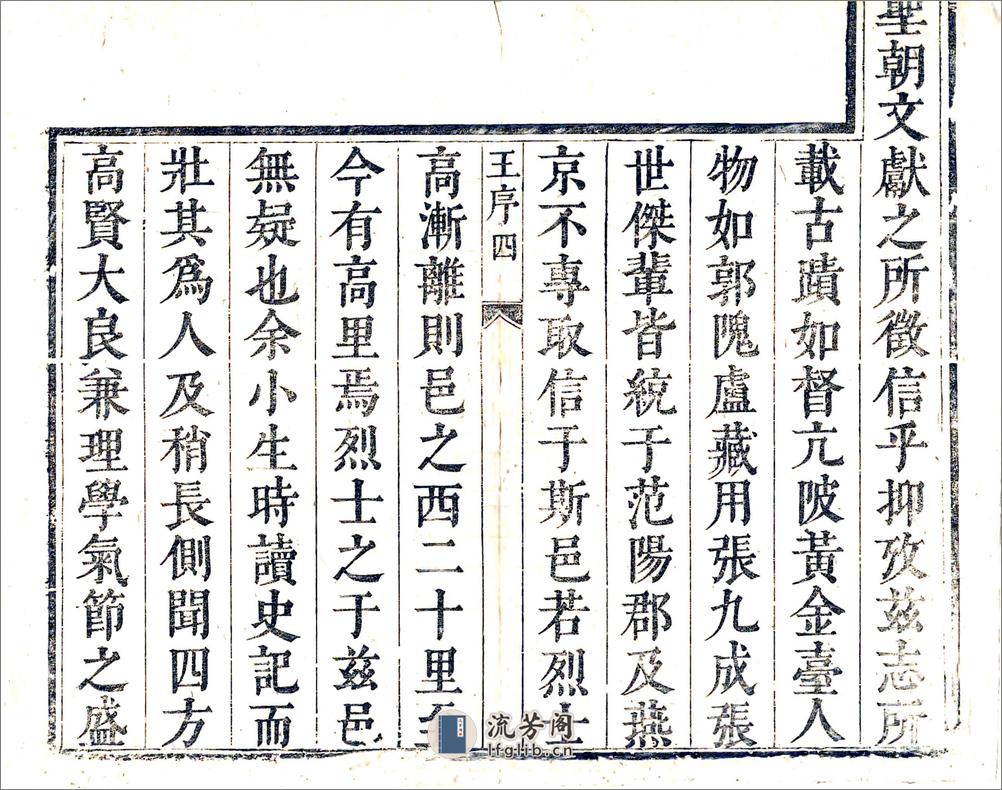 聖朝文獻之所徵信乎抑攷兹志所
載古蹟如督亢陂黃金臺人
物如郭隗盧藏用張九成張
世傑輩皆統于范陽郡及燕
京不專取信于斯邑若烈士
王序 四
高漸離則邑之西二十里至
今有高里焉烈士之于兹邑
無疑也余小生時讀史記而
壯其爲人及稍長側聞四方
高賢大良兼理學氣節之盛
流芳阁
lfglib.cn